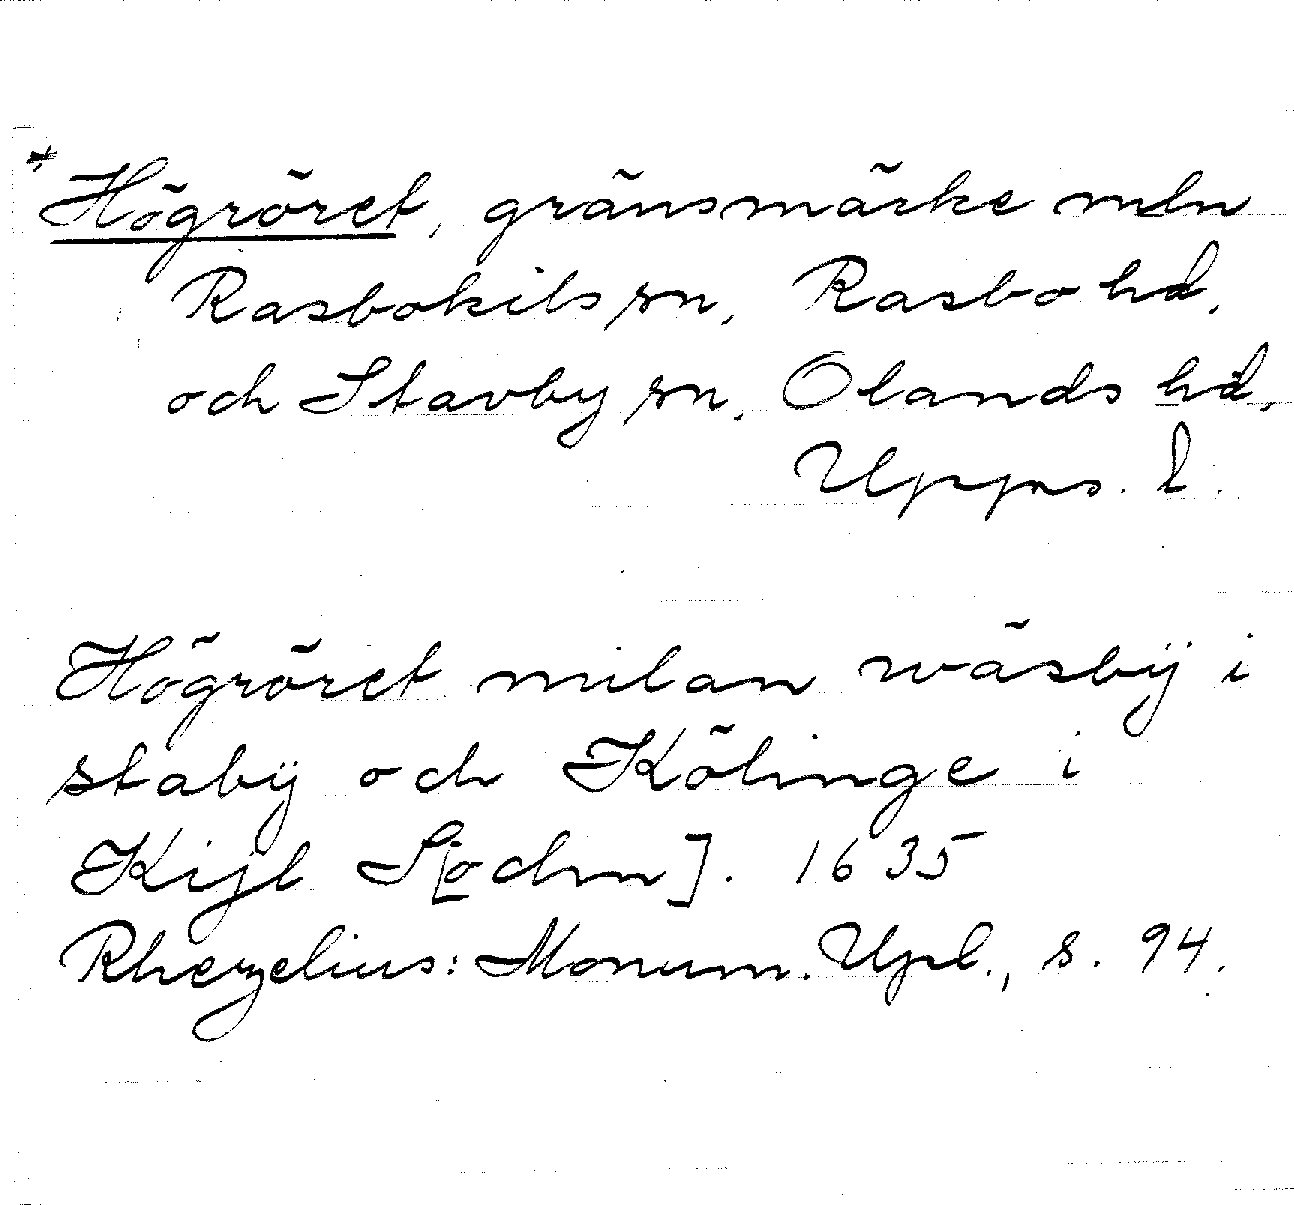 *Högröret, gränsmärke mln
Rasbokils sn, Rasbo hd,
och Stavby sn, Olands hd,
Upps. l.
Högröret milan wäsbÿ i
stabÿ och Kölinge i
Kijl S[ochn]. 1635
Rhezelius: Monum. Upl., s. 94.